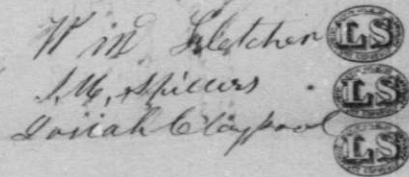 Wm Fletcher LS
S. M. Spillers LS
Josiah Claypool LS